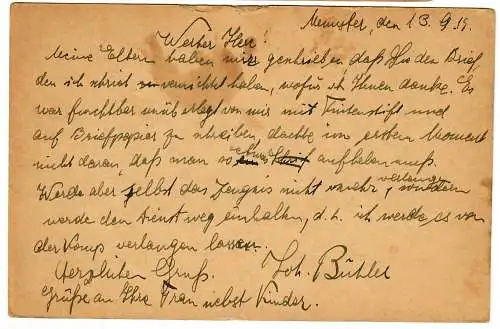 Münster, den 13.9.15.
Werter Herr!
Meine Eltern haben mir geschrieben, daß Sie den Brief,
den ich schrieb vernichtet haben, wofür ich Ihnen danke. Es
war furchtbar unüberlegt von mir mit Tintenstift und
auf Briefpapier zu schreiben, dachte im ersten Moment
nicht daran, daß man so etwas aufheben muß.
Werde aber selbst das Zeugnis nicht mehr verlangen, sondern
werde den Dienstweg einhalten, d.h. ich werde es von
der Komp verlangen lassen.
Herzlichen Gruß. Joh. Bühler
Grüße an Ihre Frau nebst Kinder.